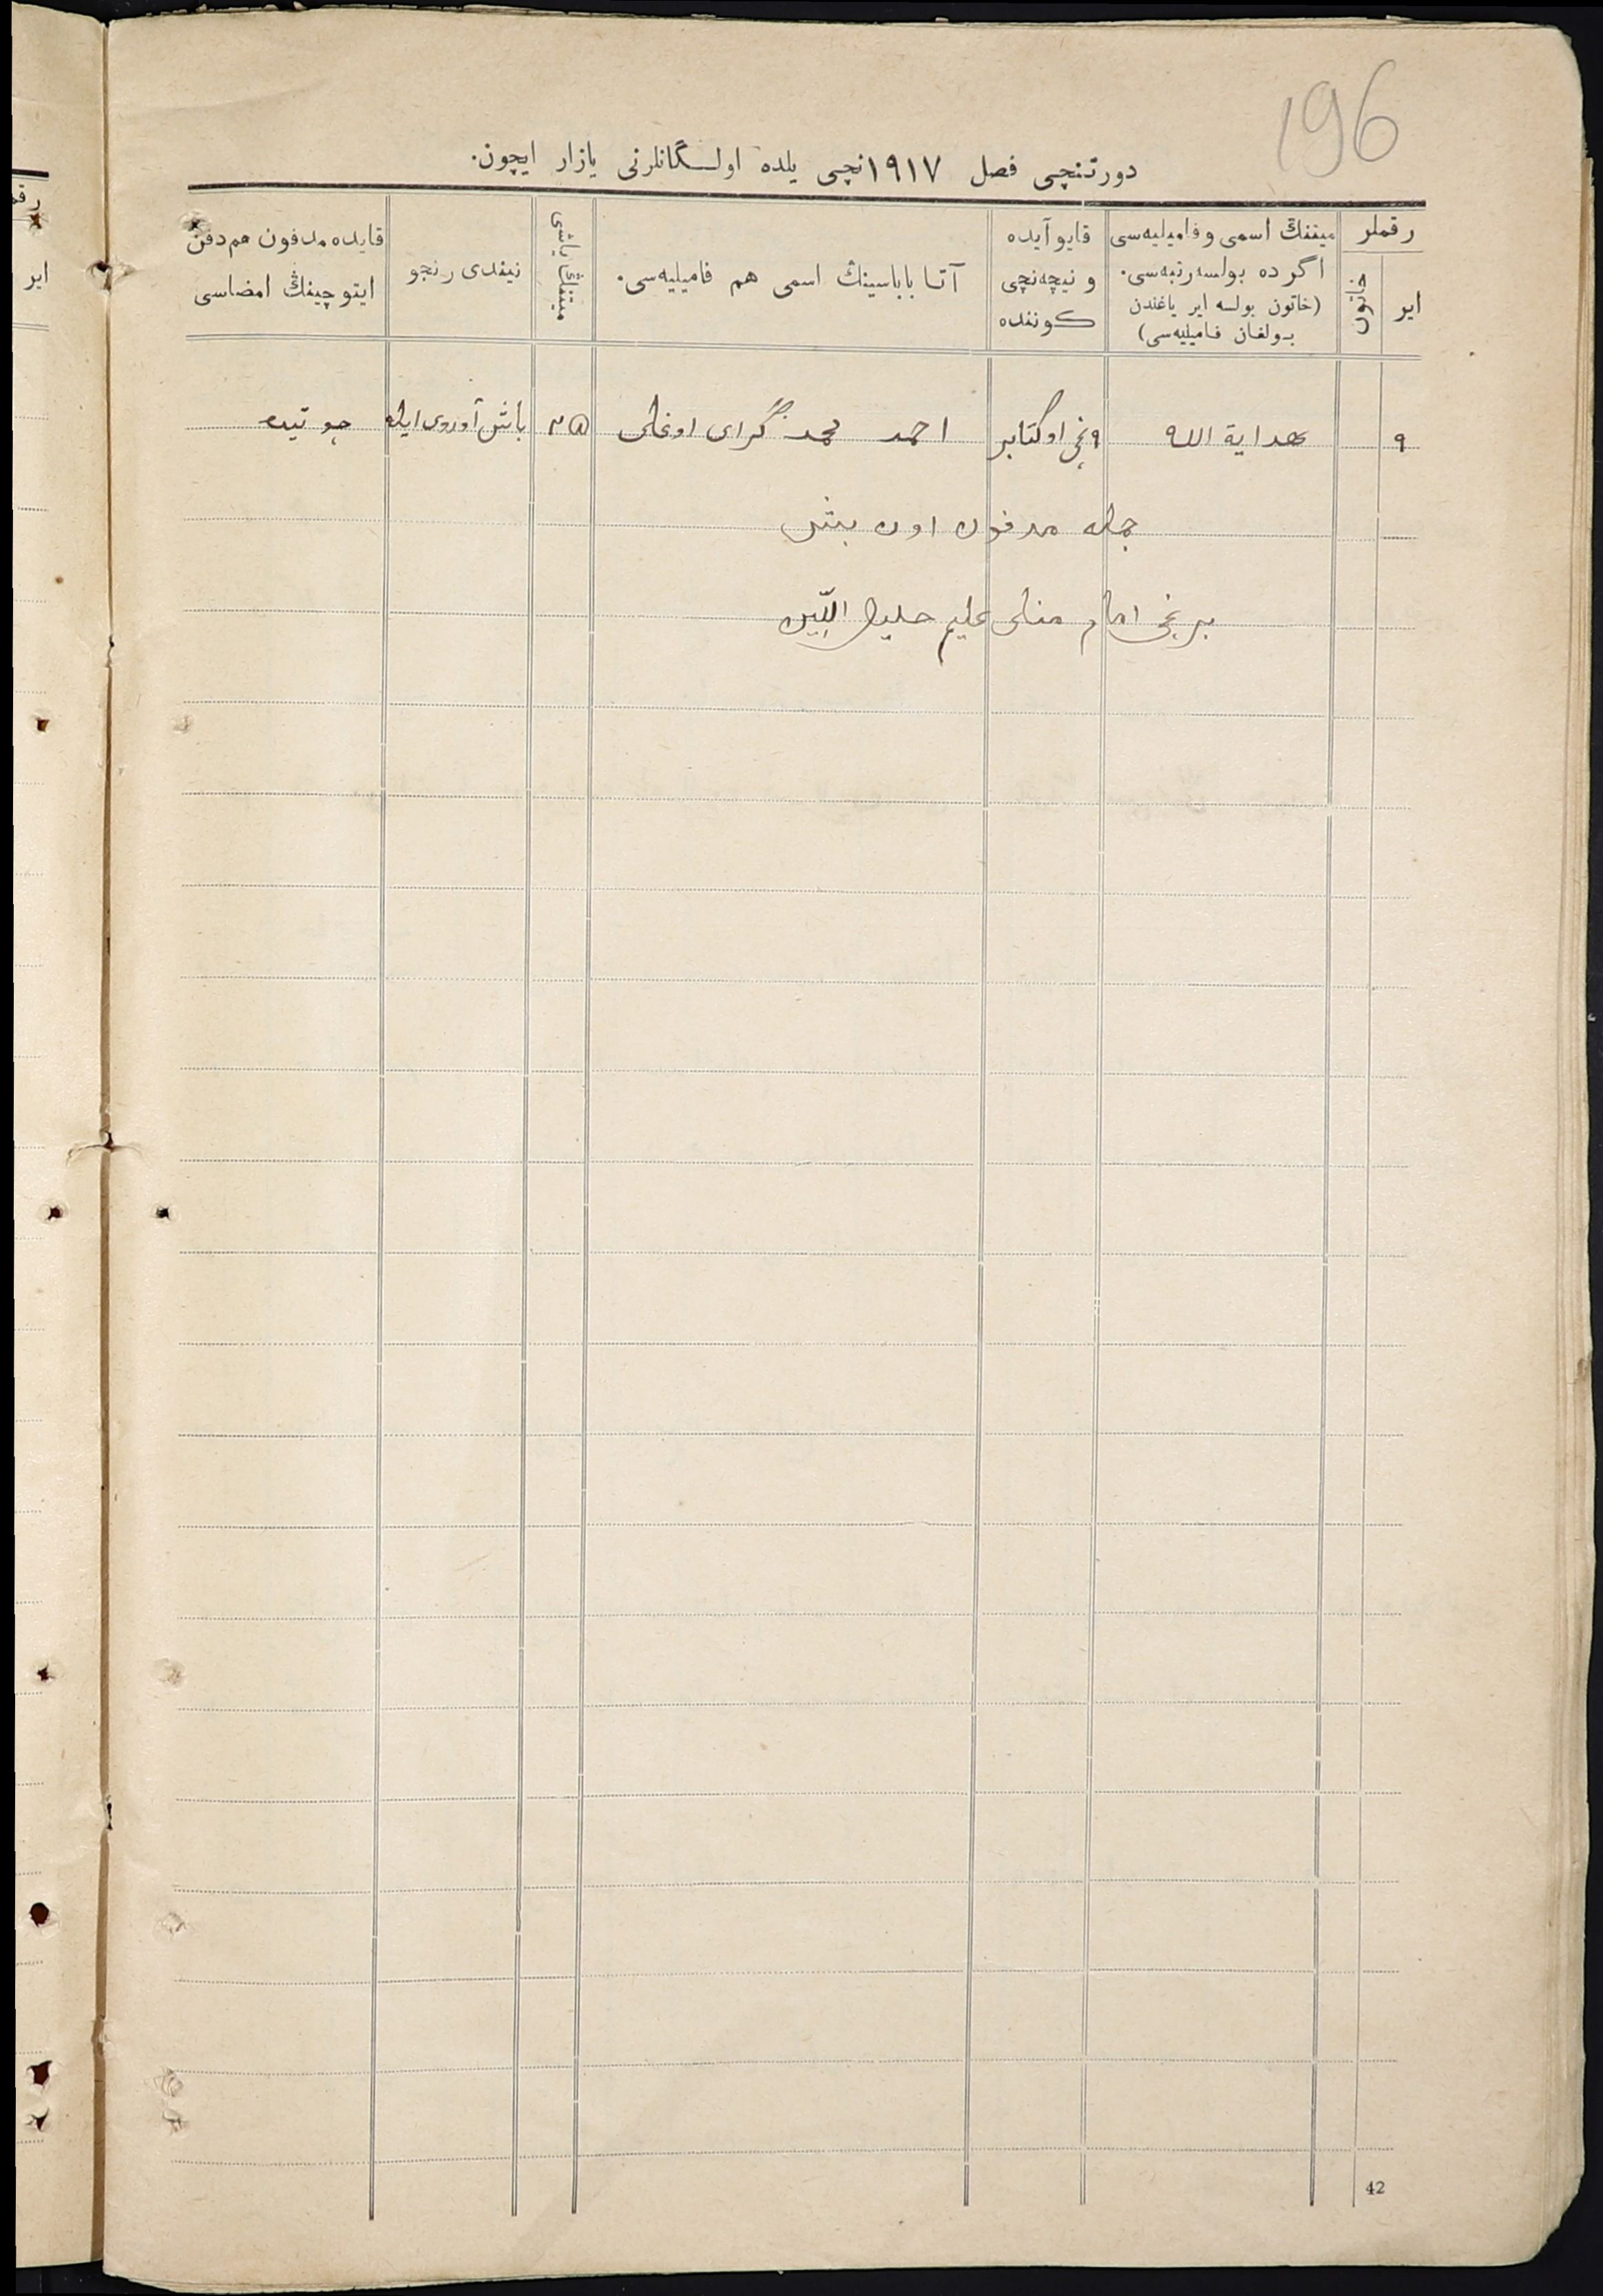 196
دورتنچی فصل ۱۹۱۷نچی یلده اولـگانلرنی یازار ایچون.
رقملر
ایر
خاتون
میتنڭ اسمی و فامیلیه‌سی
اگرده بولسه رتبه‌سی.
(خاتون بولسه ایر یاغندن
بولغان فامیلیه‌سی)
قایو آیده
و نیچه‌نچی
کوننده
آتا باباسینڭ اسمی هم فامیلیه‌سی.
میتنڭ یاشی
نیندی رنجو
قایده مدفون هم دفن
ایتوچینڭ امضاسی
۹ هدایة الله ۹نچی اوکتابر احمد محمد گرای اوغلی باش آوروی ایله
جمله مدفون اون بیش
برنچی امام
رقم
ایر
42